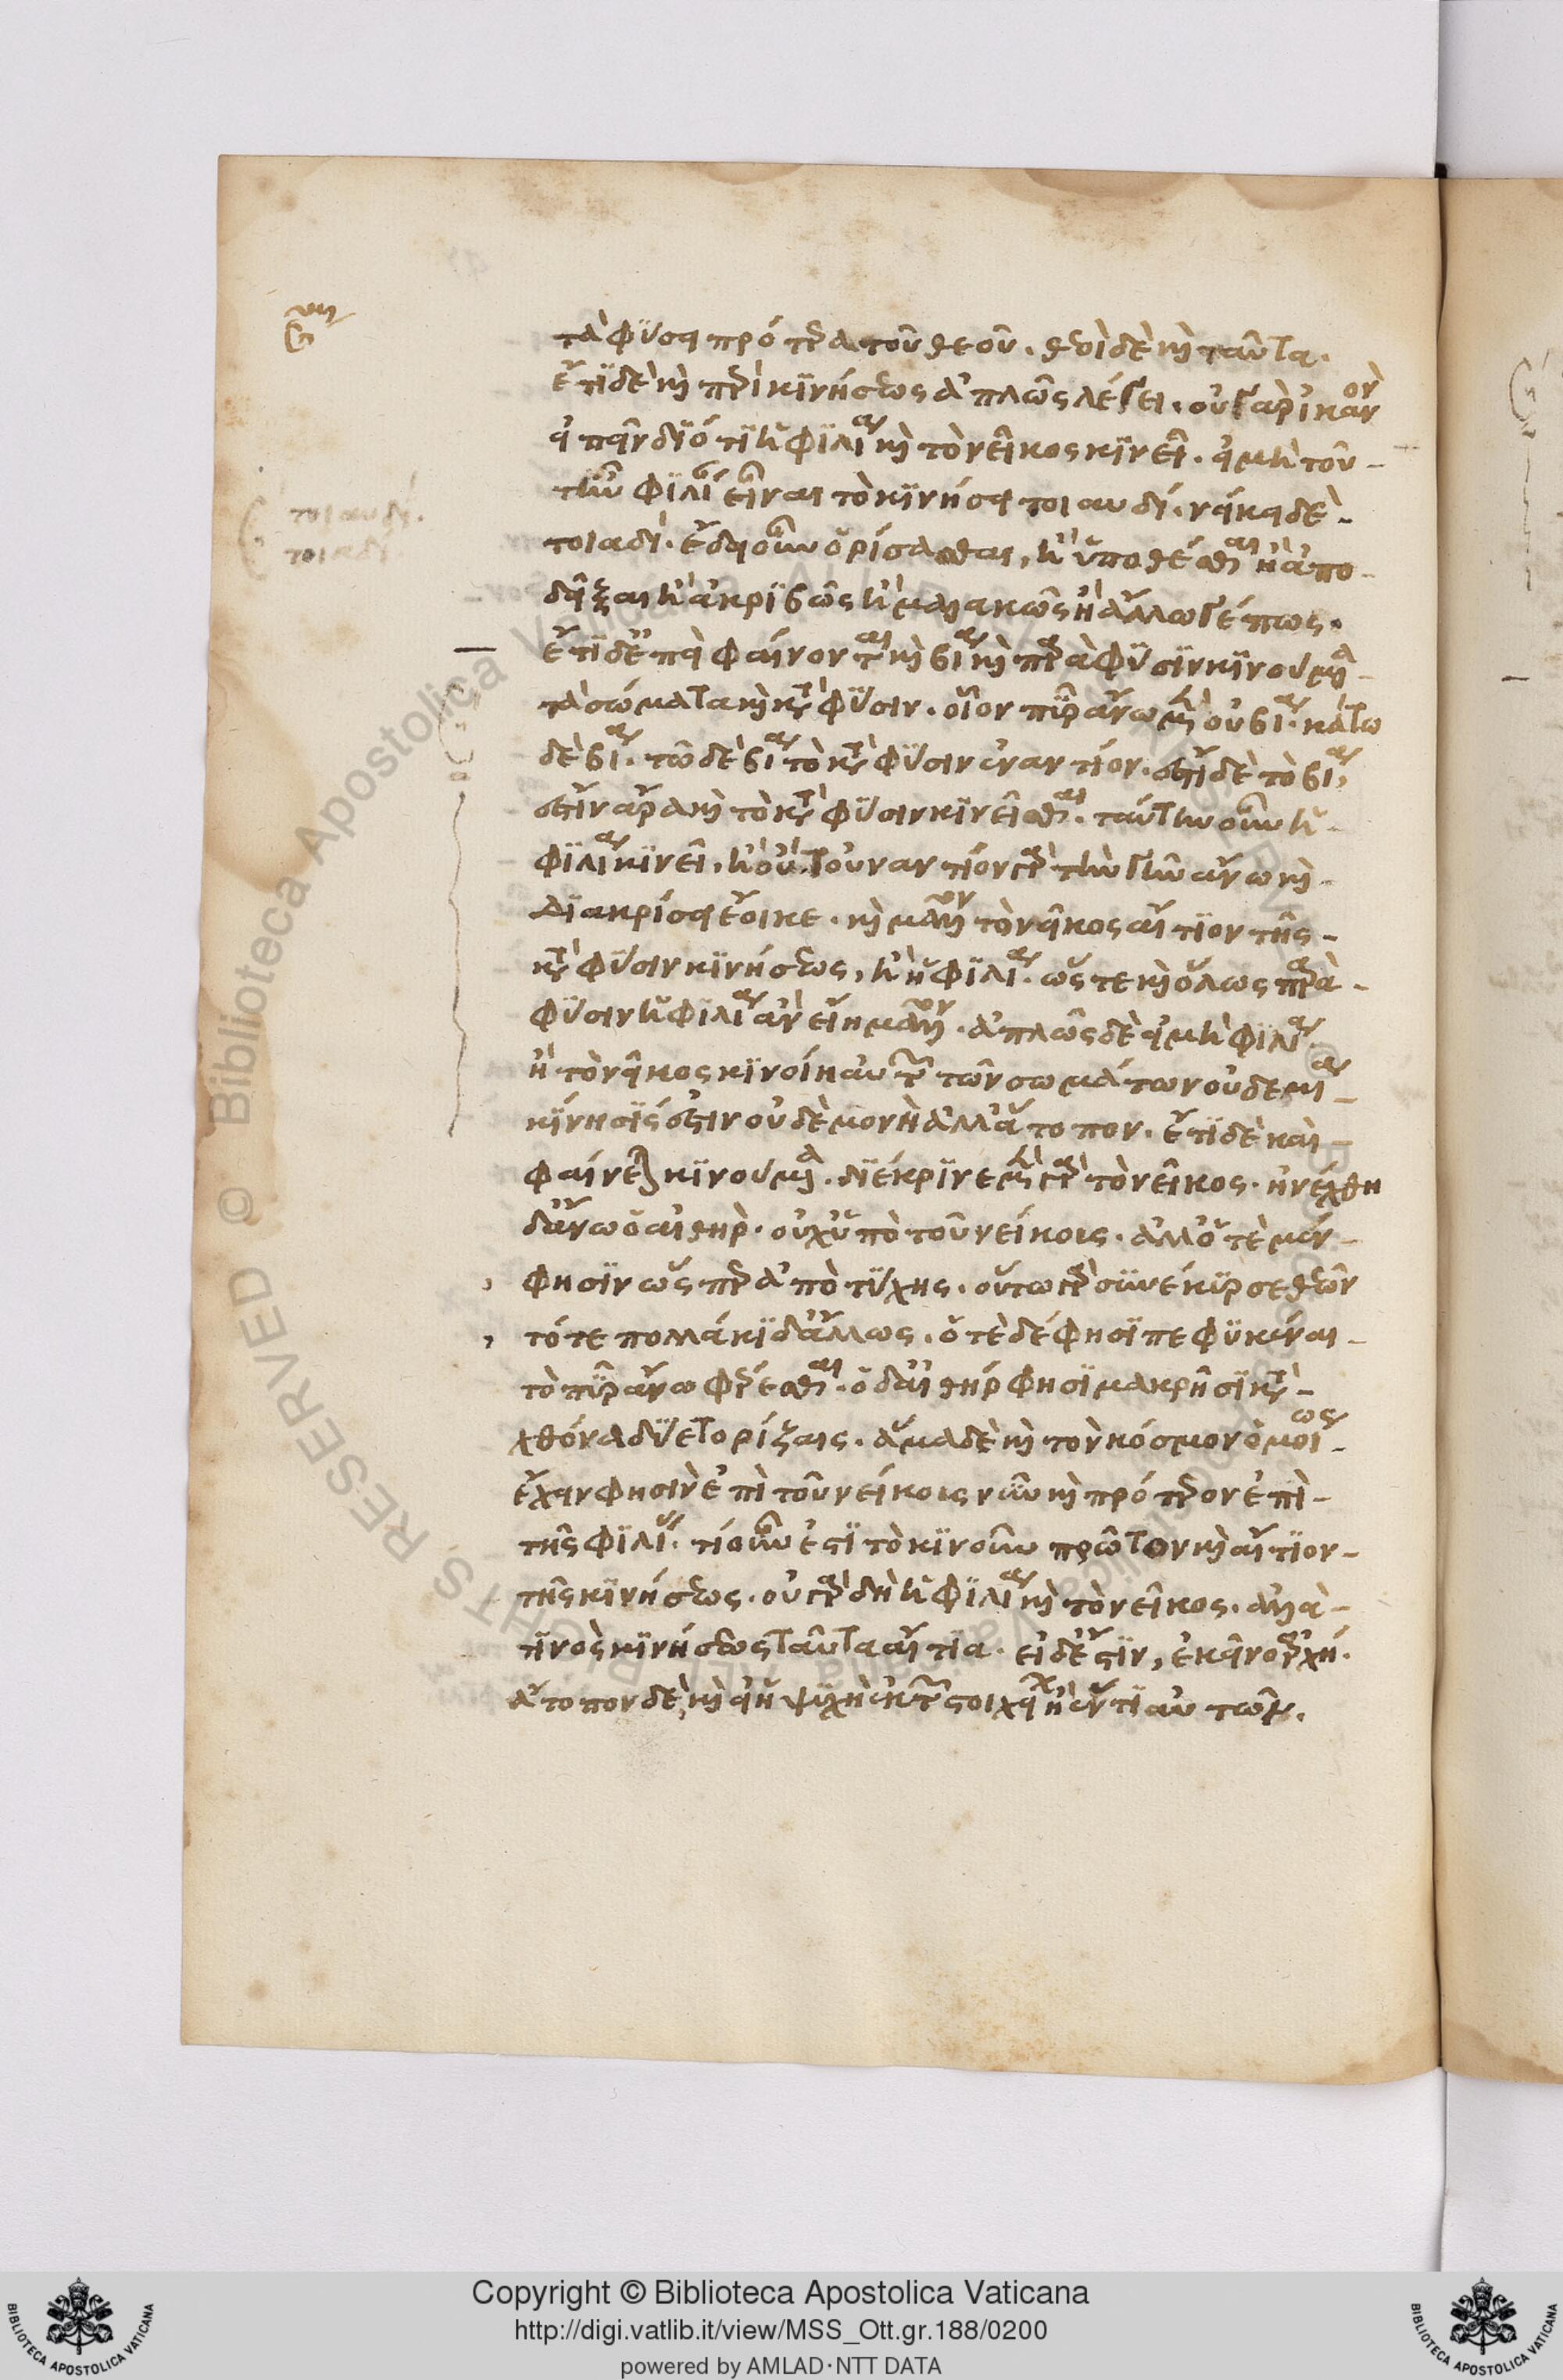 τὰ φύσει πρότερα τοῦ θεοῦ. θεοὶ δὲ καὶ ταῦτα.
ἔτι δὲ καὶ περὶ κινήσεως ἁπλῶς λέγει. οὐ γὰρ ἱκανὸν
εἰπεῖν διότι ἡ φιλία καὶ τὸ νεῖκος κινεῖ. εἰ μὴ τοῦτ
ην φιλία εἶναι τὸ κινήσει τοιαυδί. νείκει δὲ
τοιαδί. ἔδει οὖν ὁρίσασθαι, ἢ ὑποθέσθαι ἢ ἀπο
δεῖξαι ἢ ἀκριβῶς ἢ μαλακῶς ἢ ἄλλως γέ πως.
ἔτι δ' ἐπεὶ φαίνονται καὶ βίᾳ καὶ παρὰ φύσιν κινούμενα
τὰ σώματα καὶ κατὰ φύσιν. οἷον πῦρ ἄνω μὲν οὐ βίᾳ. κάτω
δὲ βίᾳ. τῷ δὲ βίᾳ τὸ κατὰ φύσιν ἐναντίον. ἔστι δὲ τὸ βίᾳ,
ἔστιν ἄρα καὶ τὸ κατὰ φύσιν κινεῖσθαι. ταύτην οὖν ἡ
φιλία κινεῖ, ἢ οὔ. τοὐναντίον γὰρ τὴν γῆν ἄνω καὶ
διακρίσει ἔοικε. καὶ μᾶλλον τὸ νεῖκος αἴτιον τῆς
κατὰ φύσιν κινήσεως, ἢ ἡ φιλία. ὥστε καὶ ὅλως παρὰ
φύσιν ἡ φιλία ἂν εἴη μᾶλλον. ἁπλῶς δὲ εἰ μὴ φιλία
ἢ τὸ νεῖκος κινοίη αὐτῶν τῶν σωμάτων οὐδεμία
κίνησίς ἐστιν οὐδὲ μονὴ ἀλλ' ἄτοπον. ἔτι δὲ καὶ
φαίνεται κινούμενα. διέκρινε μὲν γὰρ τὸ νεῖκος. ἠνέχθη
δ' ἄνω ὁ αἰθὴρ. οὐχ ὑπὸ τοῦ νείκους. ἀλλ' ὁτὲ μέν
φησιν ὥσπερ ἀπὸ τύχης. οὕτω γὰρ συνέκυρσε θέων
τότε πολλάκι δ' ἄλλως. ὁτὲ δέ φησι πεφυκέναι
τὸ πῦρ ἄνω φέρεσθαι. ὁ δ' αἰθήρ φησι μακρῇσι κατὰ
χθόνα δύετο ῥίζαις. ἅμα δὲ καὶ τὸν κόσμον ὁμοίως
ἔχειν φησὶν ἐπὶ τοῦ νείκους νῦν καὶ πρότερον ἐπὶ
τῆς φιλίας. τί οὖν ἐστὶ τὸ κινοῦν πρῶτον καὶ αἴτιον
τῆς κινήσεως. οὐ γὰρ δὴ ἡ φιλία καὶ τὸ νεῖκος. ἀλλά
τινος κινήσεως ταῦτα αἴτια. εἰ δ' ἔστιν, ἐκεῖνο ἀρχή.
ἄτοπον δὲ, καὶ εἰ ἡ ψυχὴ ἐκ τῶν στοιχείων ἢ ἕν τι αὐτῶν.
Copyright © Biblioteca Apostolica Vaticana
http://digi.vatlib.it/view/MSS_Ott.gr.188/0200
powered by AMLAD·NTT DATA